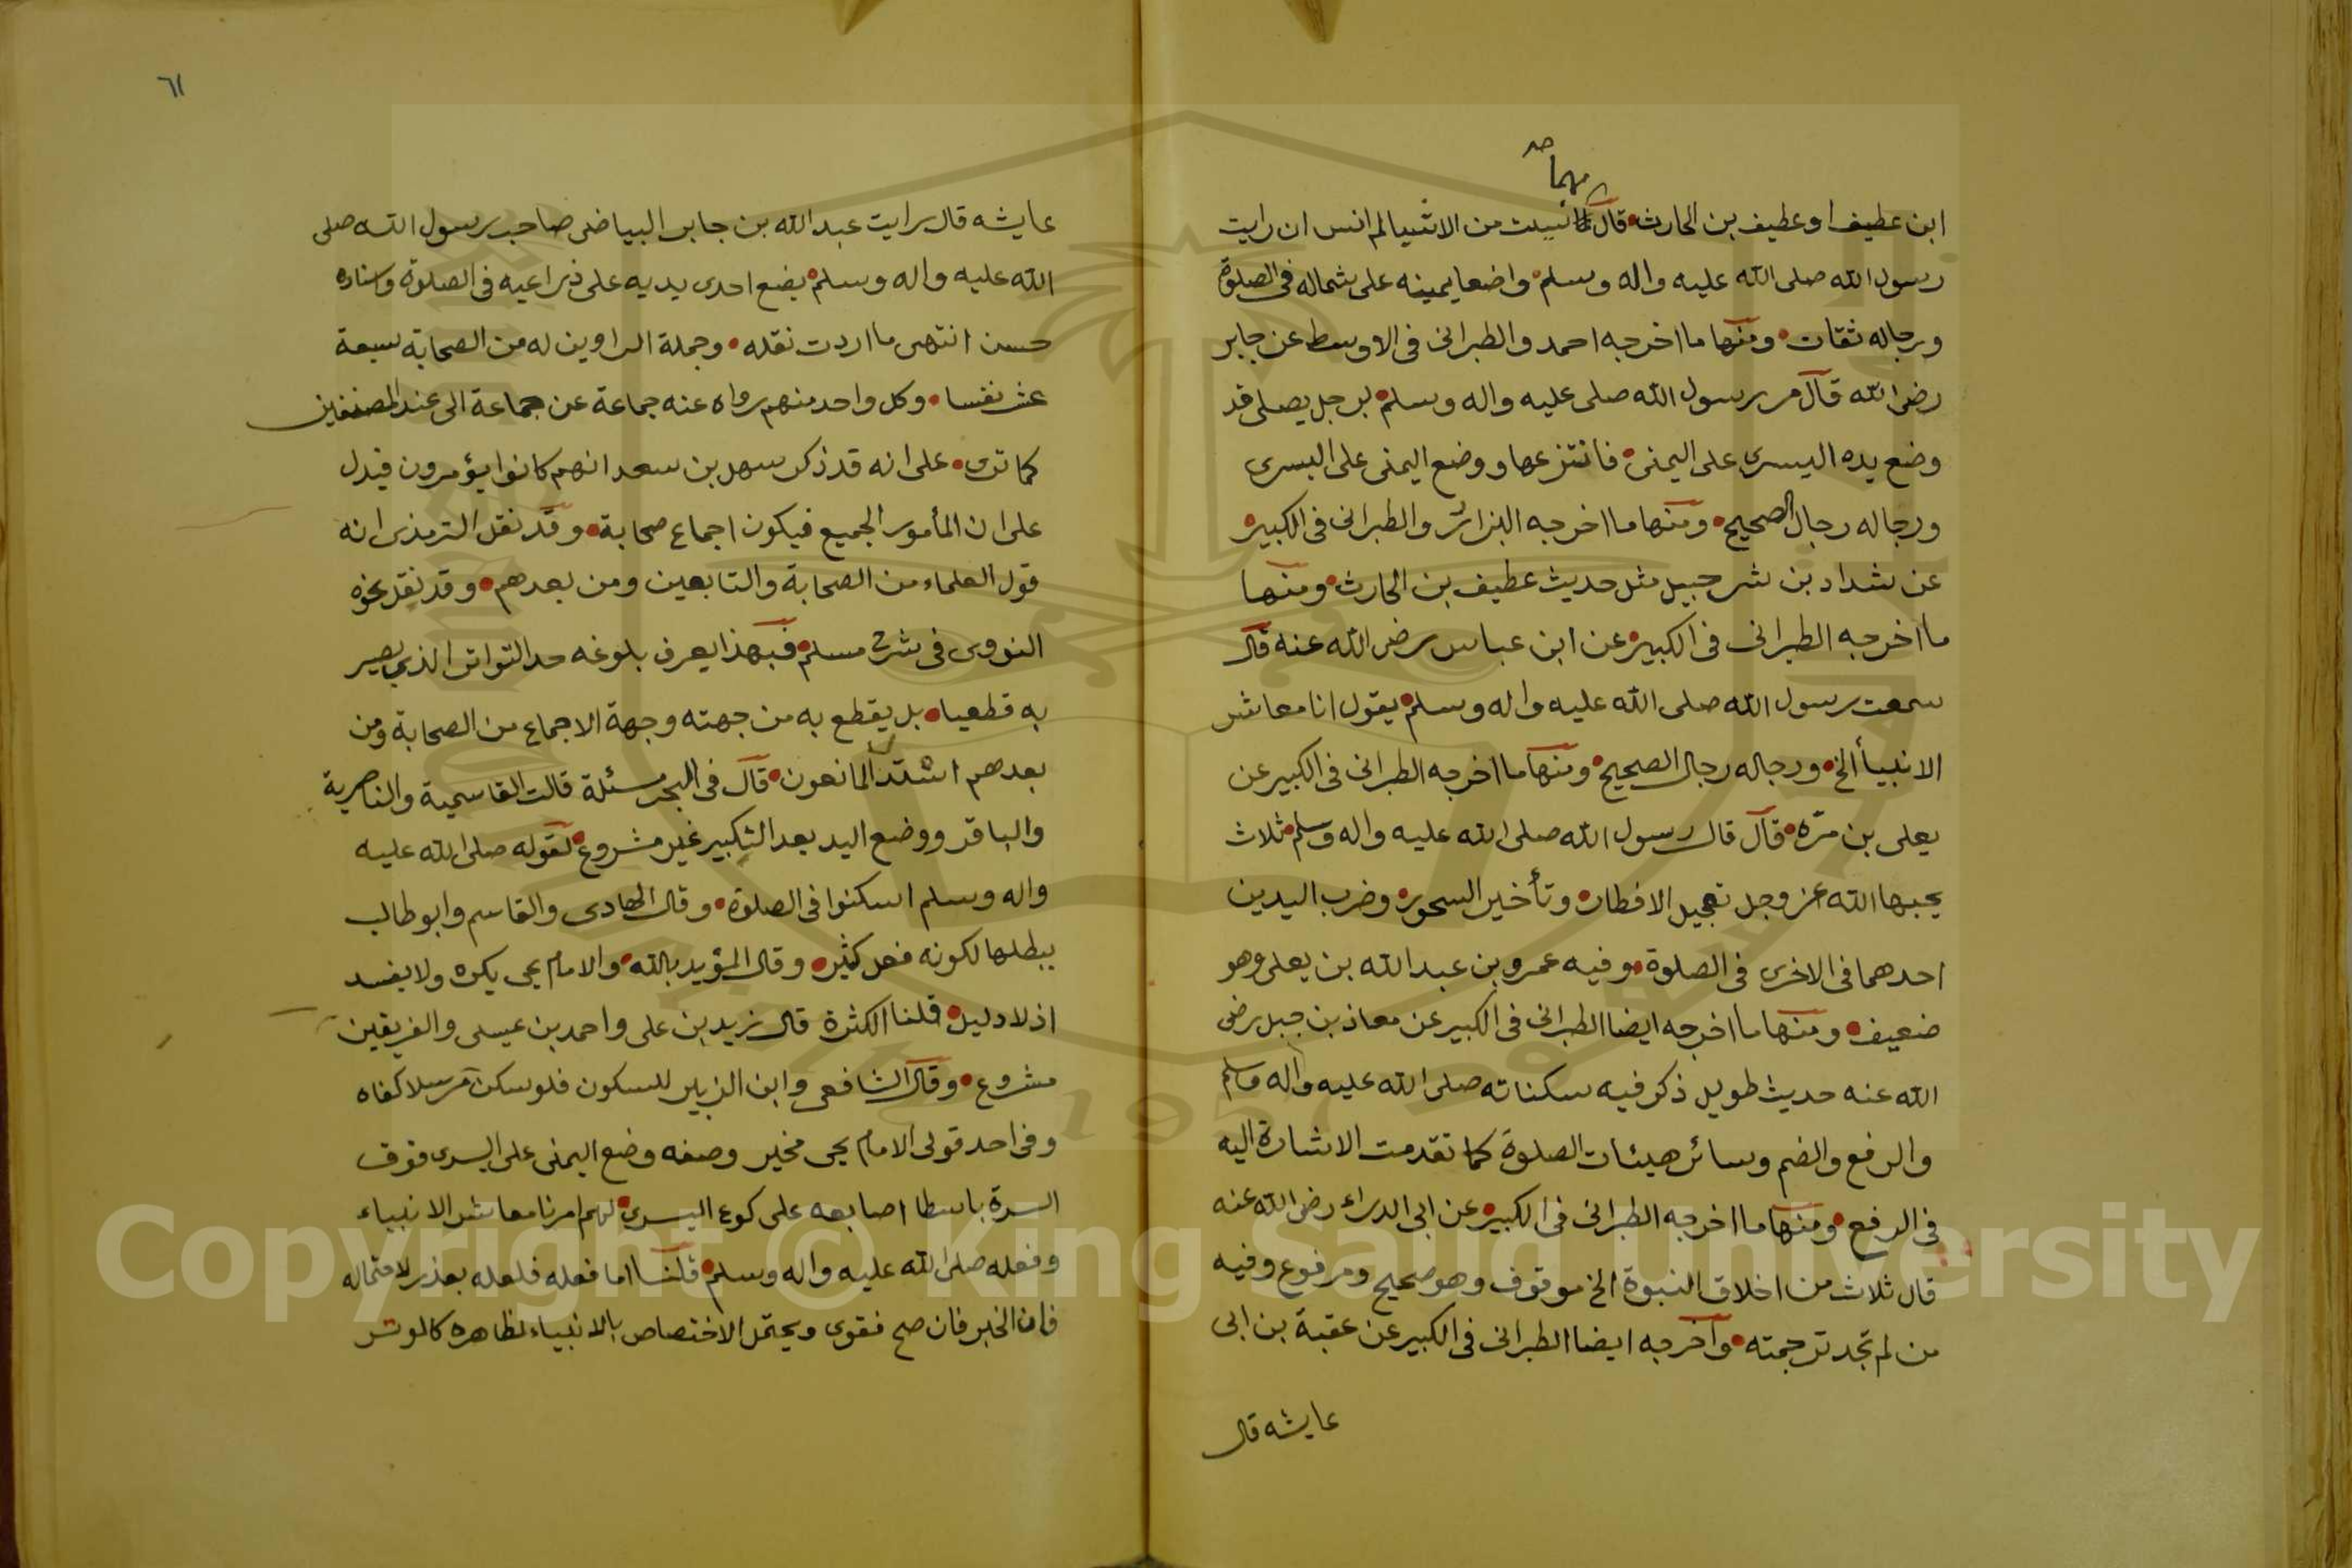 مهما صح
ابن عطيف او عطيف بن الحارث قال نسيت من الاشيا لم انس ان رايت
رسول الله صلى الله عليه واله وسلم واضعا يمينه على شماله في الصلوة
ورجاله ثقات ومنها ما اخرجه احمد والطبراني في الاوسط عن جابر
رضي الله قال مر رسول الله صلى عليه واله وسلم برجل يصلى قد
وضع يده اليسرى على اليمنى فانتزعها ووضع اليمنى على اليسرى
ورجاله رجال الصحيح ومنها ما اخرجه البزار والطبراني في الكبير
عن شداد بن شرحبيل مثل حديث عطيف بن الحارث ومنها
ما اخرجه الطبراني في الكبير عن ابن عباس رضي الله عنه قال
سمعت رسول الله صلى الله عليه واله وسلم يقول انا معاشر
الانبيأ الخ ورجاله رجال الصحيح ومنها ما اخرجه الطبراني في الكبير عن
يعلى بن مرّه قال قال رسول الله صلى الله عليه واله وسلم ثلاث
يحبها الله عز وجل تعجيل الافطار وتأخير السحور وضرب اليدين
احدهما في الاخرى في الصلوة وفيه عمرو بن عبد الله بن يعلى وهو
ضعيف ومنها ما اخرجه ايضا الطبراني في الكبير عن معاذ بن جبل رضي
الله عنه حديث طويل ذكر فيه سكناته صلى الله عليه واله وسلم
والرفع والضم وسائر هيئات الصلوة كما تقدمت الاشارة اليه
في الرفع ومنها ما اخرجه الطبراني في الكبير عن ابي الدراء رضي الله عنه
قال ثلاث من اخلاق النبوة الخ موقوف وهو صحيح ومرفوع وفيه
من لم تجد ترجمته وآخرجه ايضا الطبراني في الكبير عن عقبة بن ابي
عايشه قال
٦١
عايشه قال رايت عبد الله بن جابر البياضي صاحب رسول الله صلى
الله عليه واله وسلم يضع احدى يديه على ذراعيه في الصلوة واسناده
حسن انتهى ما اردت نقله وجملة الراوين له من الصحابة سبعة
عشر نفسا وكل واحد منهم رواه عنه جماعة عن جماعة الى عند المصنفين
كما ترى على انه قد ذكر سهل بن سعد انهم كانوا يؤمرون فيدل
على ان المأمور الجميع فيكون اجماع صحابة وقد نقل الترمذي انه
قول العلماء من الصحابة والتابعين ومن بعدهم وقد نقل نحوه
النووي في شرح مسلم فبهذا يعرف بلوغه حد التواتر الذي يصير
به قطعيا بل يقطع به من جهته وجهة الاجماع من الصحابة ومن
بعدهم استند المانعون قال في البحر مسئلة قالت القاسمية والناصرية
والباقر ووضع اليد بعد التكبير غير مشروع لقوله صلى الله عليه
واله وسلم اسكنوا في الصلوة وقال الهادي والقاسم وابو طالب
يبطلها لكونه فعل كثير وقال المؤيد بالله والامام يحيى يكره ولا يفسد
اذ لا دليل قلنا الكثرة قال زيد بن على واحمد بن عيسى والفريقين
مشروع وقال الشافعي وابن الزبير للسكون فلو سكن مرسلا كفاه
وفي احد قولى الامام يحيى مخير وصفه وضع اليمنى على اليسرى فوق
السرة باسطا اصابعه على كوع اليسرى لهم امرنا معاشر الانبياء
وفعله صلى الله عليه واله وسلم قلنا اما فعله فلعله بعذر لاحتماله
فاما الخبر فان صح فقوي ويحتمل الاختصاص بالانبياء لظاهره كالوتر
Copyright © King Saud University
1957